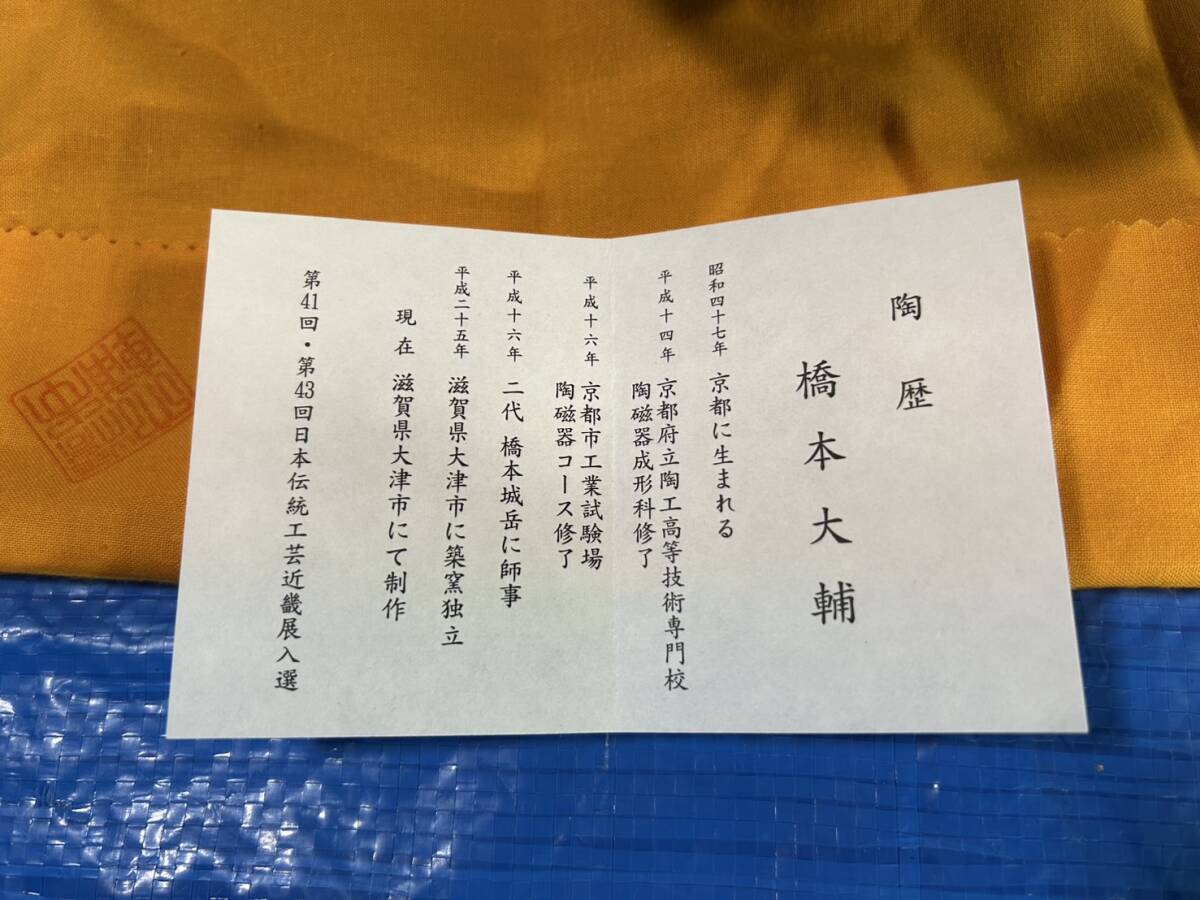 陶歴
橋本大輔
昭和四十七年 京都に生まれる
平成十四年 京都府立陶工高等技術専門校
陶磁器成形科修了
平成十六年 京都市工業試験場
陶磁器コース修了
平成十六年 二代 橋本城岳に師事
平成二十五年 滋賀県大津市に築窯独立
現在 滋賀県大津市にて制作
第41回・第43回日本伝統工芸近畿展入選